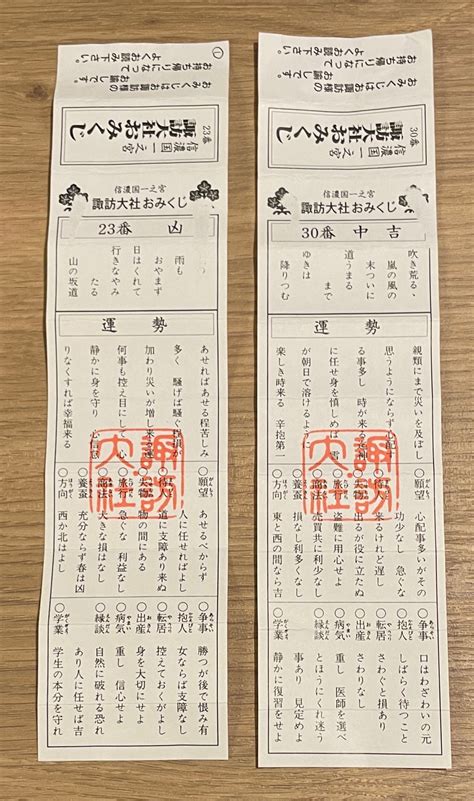 ①
おみくじはお諏訪様の
お諭しです。
お持ち帰りになって
よくお読み下さい。
23番
信濃国一之宮
諏訪大社おみくじ
信濃国一之宮
諏訪大社おみくじ
23番 凶
雨も
おやまず
日はくれて
行きなやみ
たる
山の坂道
運勢
あせればあせる程苦しみ
多く 騒げば騒ぐ程損が
加わり災いが増し来る
何事も控え目にして 心
静かに身を守り 心信怠
りなくすれば幸福来る
諏訪大社
○願望 あせるべからず
人に任せればよし
○待人 道に支障あり来ぬ
○失物 物の間にある
○旅行 急ぐな 利益なし
○商法 大きな損はなし
○養蚕 充分ならず春は凶
○方向 西か北はよし
○争事 勝つが後で恨み有
○抱人 女ならば支障なし
○転居 控えておくがよし
○出産 身を大切にせよ
○病気 重し 信心せよ
○縁談 自然に破れる恐れ
あり 人に任せば吉
○学業 学生の本分を守れ
おみくじはお諏訪様の
お諭しです。
お持ち帰りになって
よくお読み下さい。
30番
信濃国一之宮
諏訪大社おみくじ
信濃国一之宮
諏訪大社おみくじ
30番 中吉
吹き荒る、
嵐の風の
末ついに
道うまる
まで
ゆきは
降りつむ
運勢
親類にまで災いを及ぼし
思うようにならず心配す
る事多し 時が来る迄神
に任せ身を慎しめば 雪
が朝日で溶けるように
楽しき時来る 辛抱第一
諏訪大社
○願望 心配事多いがその
功少なし 急ぐな
○待人 来るけれど遅し
○失物 出るが役に立たぬ
○旅行 盗難に用心せよ
○商法 売買共に利少なし
○養蚕 損なし利多くなし
○方向 東と西の間なら吉
○争事 口はわざわいの元
○抱人 しばらく待つこと
○転居 さわぐと損あり
○出産 さわりなし
○病気 重し 医師を選べ
○縁談 とほうにくれ迷う
事あり 見定めよ
○学業 静かに復習をせよ